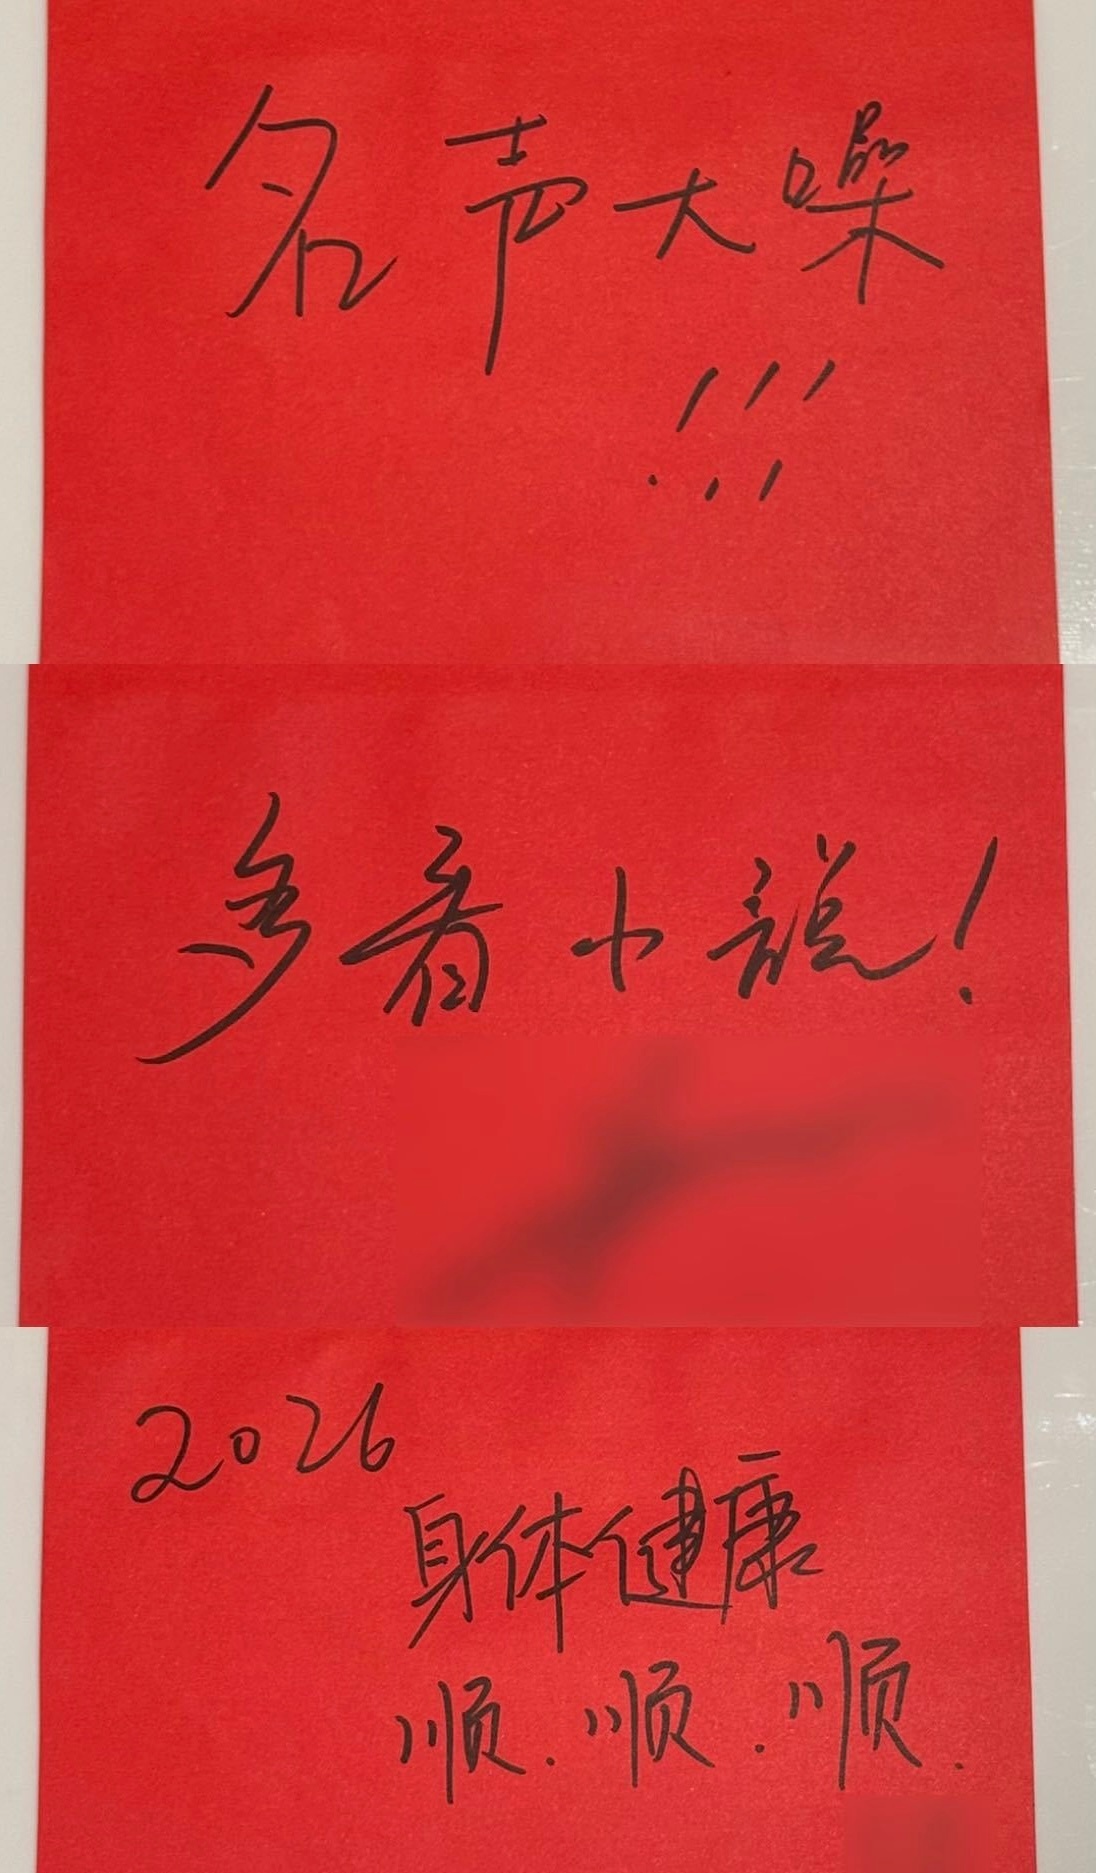 名声大噪
!!!
多看小説!
2026
身体健康
顺.顺.顺.